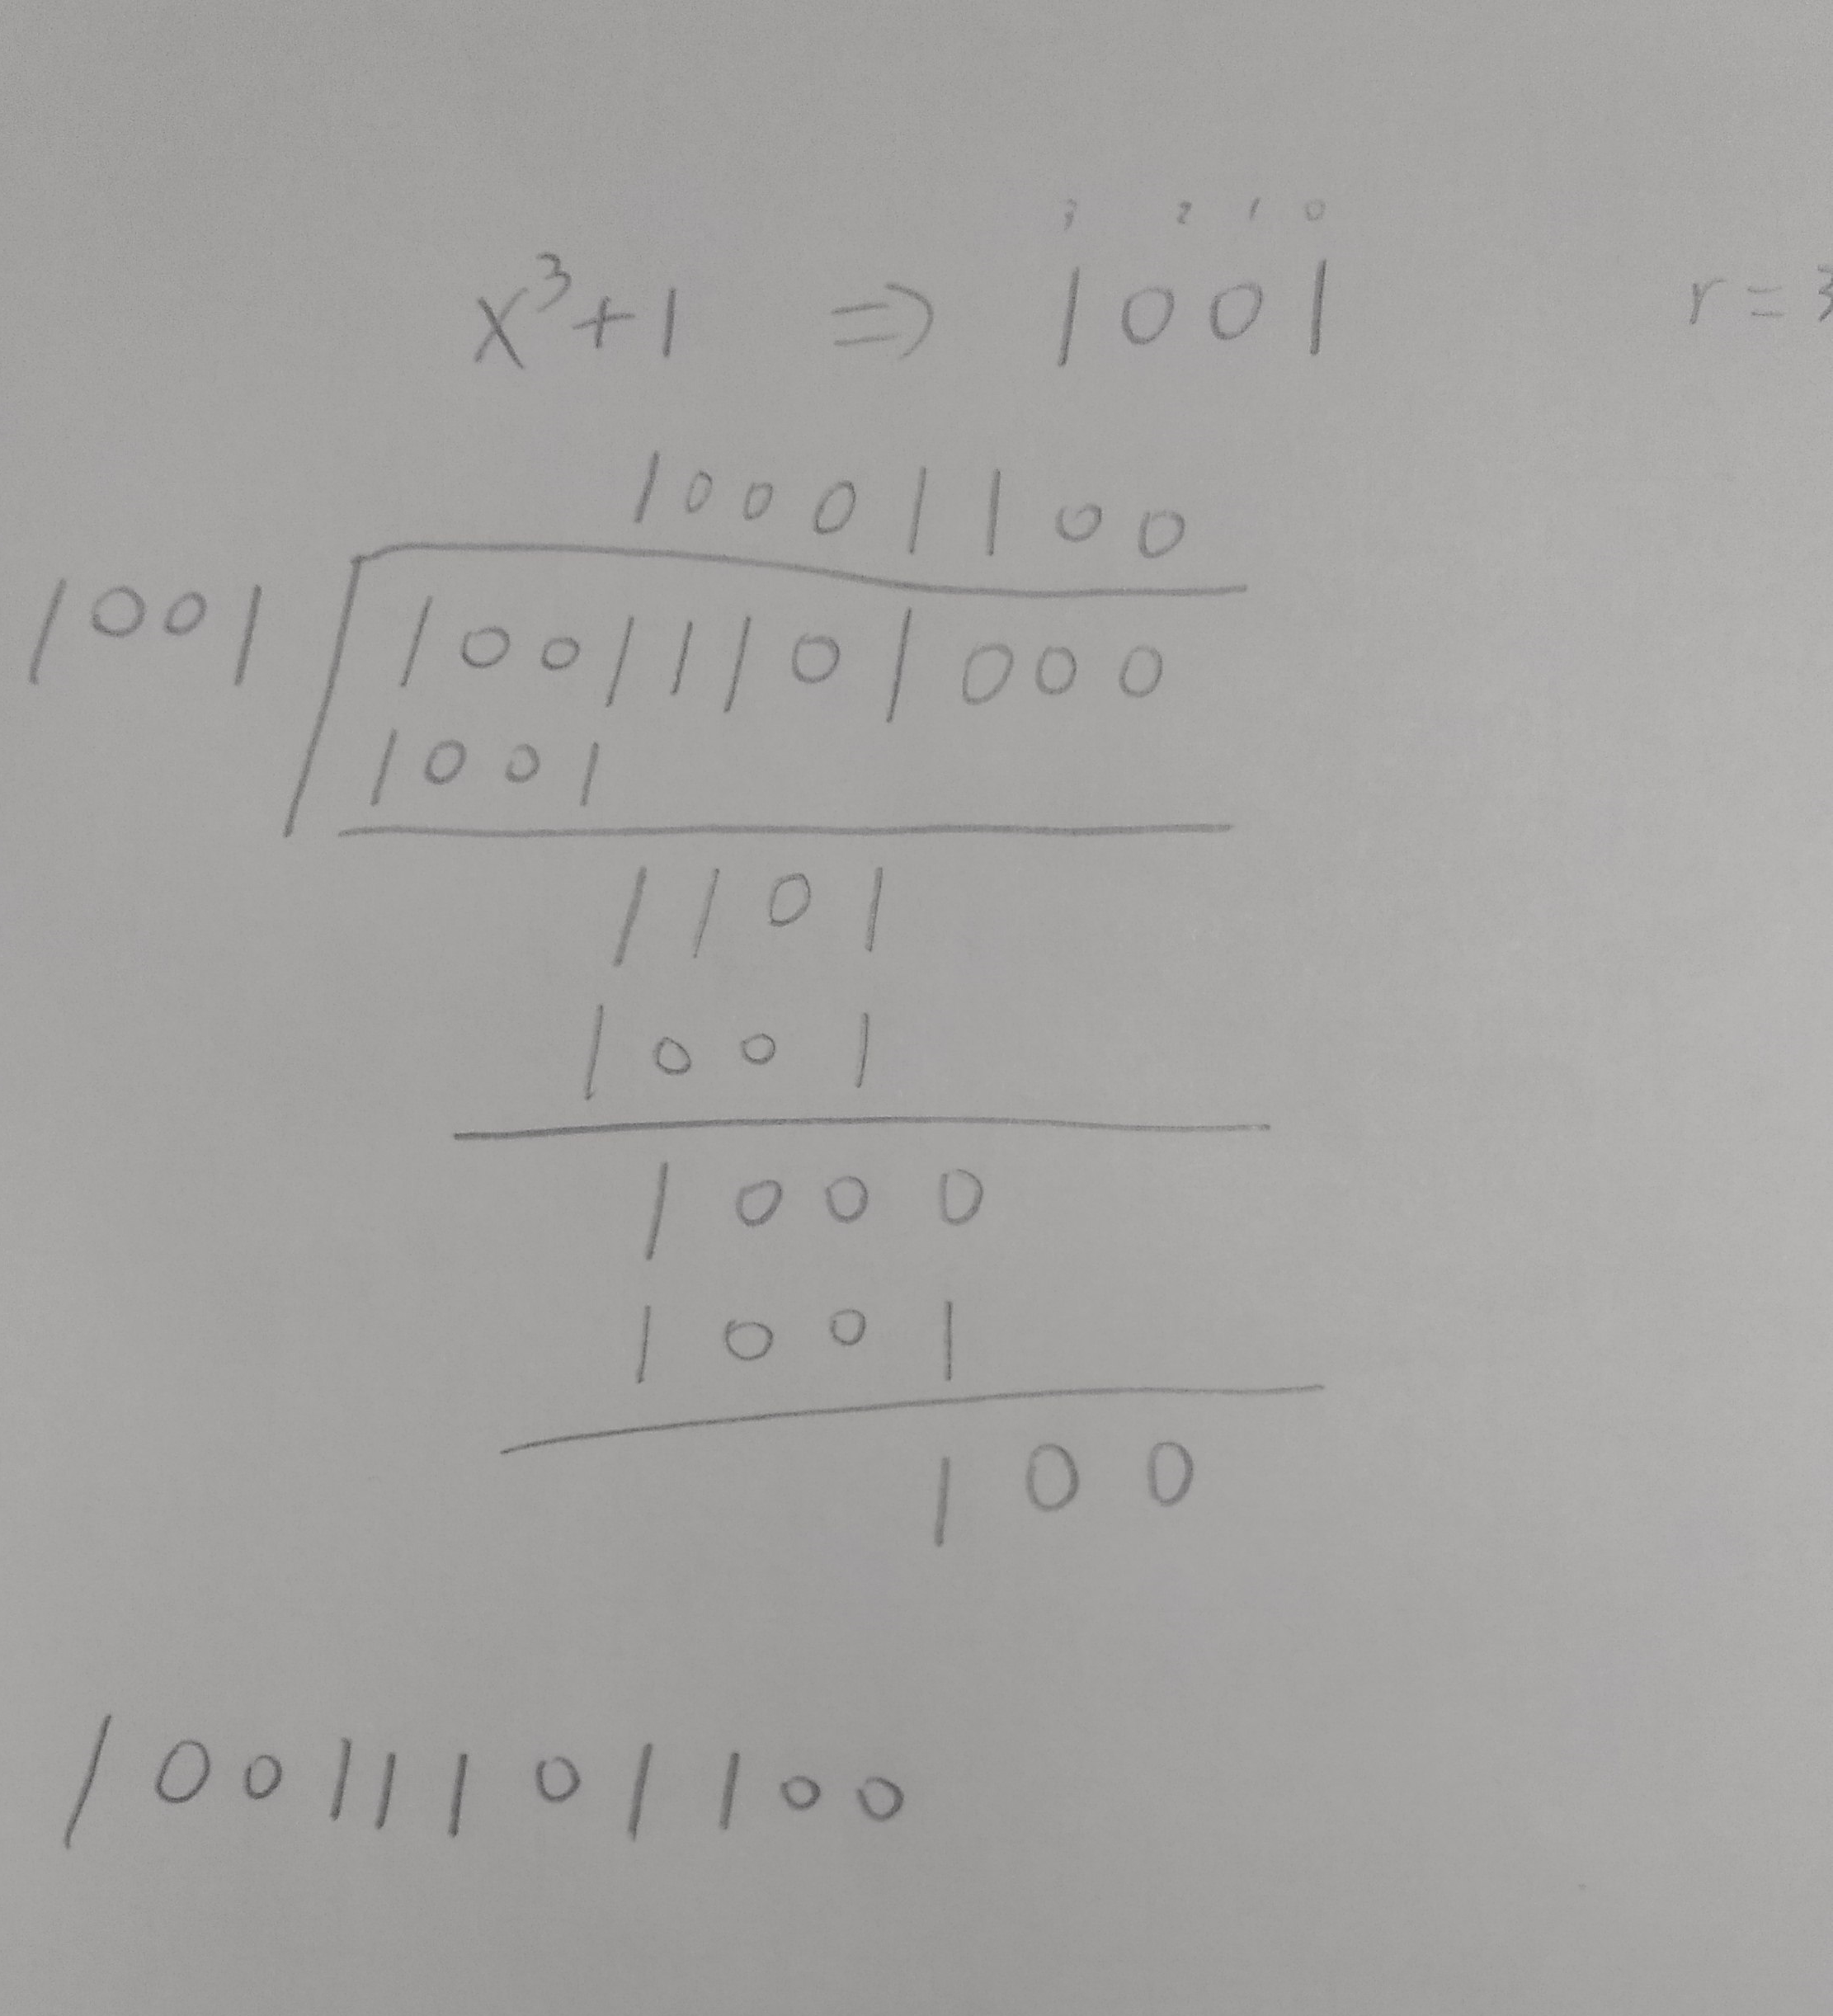 3 2 1 0
x³+1 ⇒ 1001 r=3
10001100
1001 10011101000
1001
1101
1001
1000
1001
100
10011101100